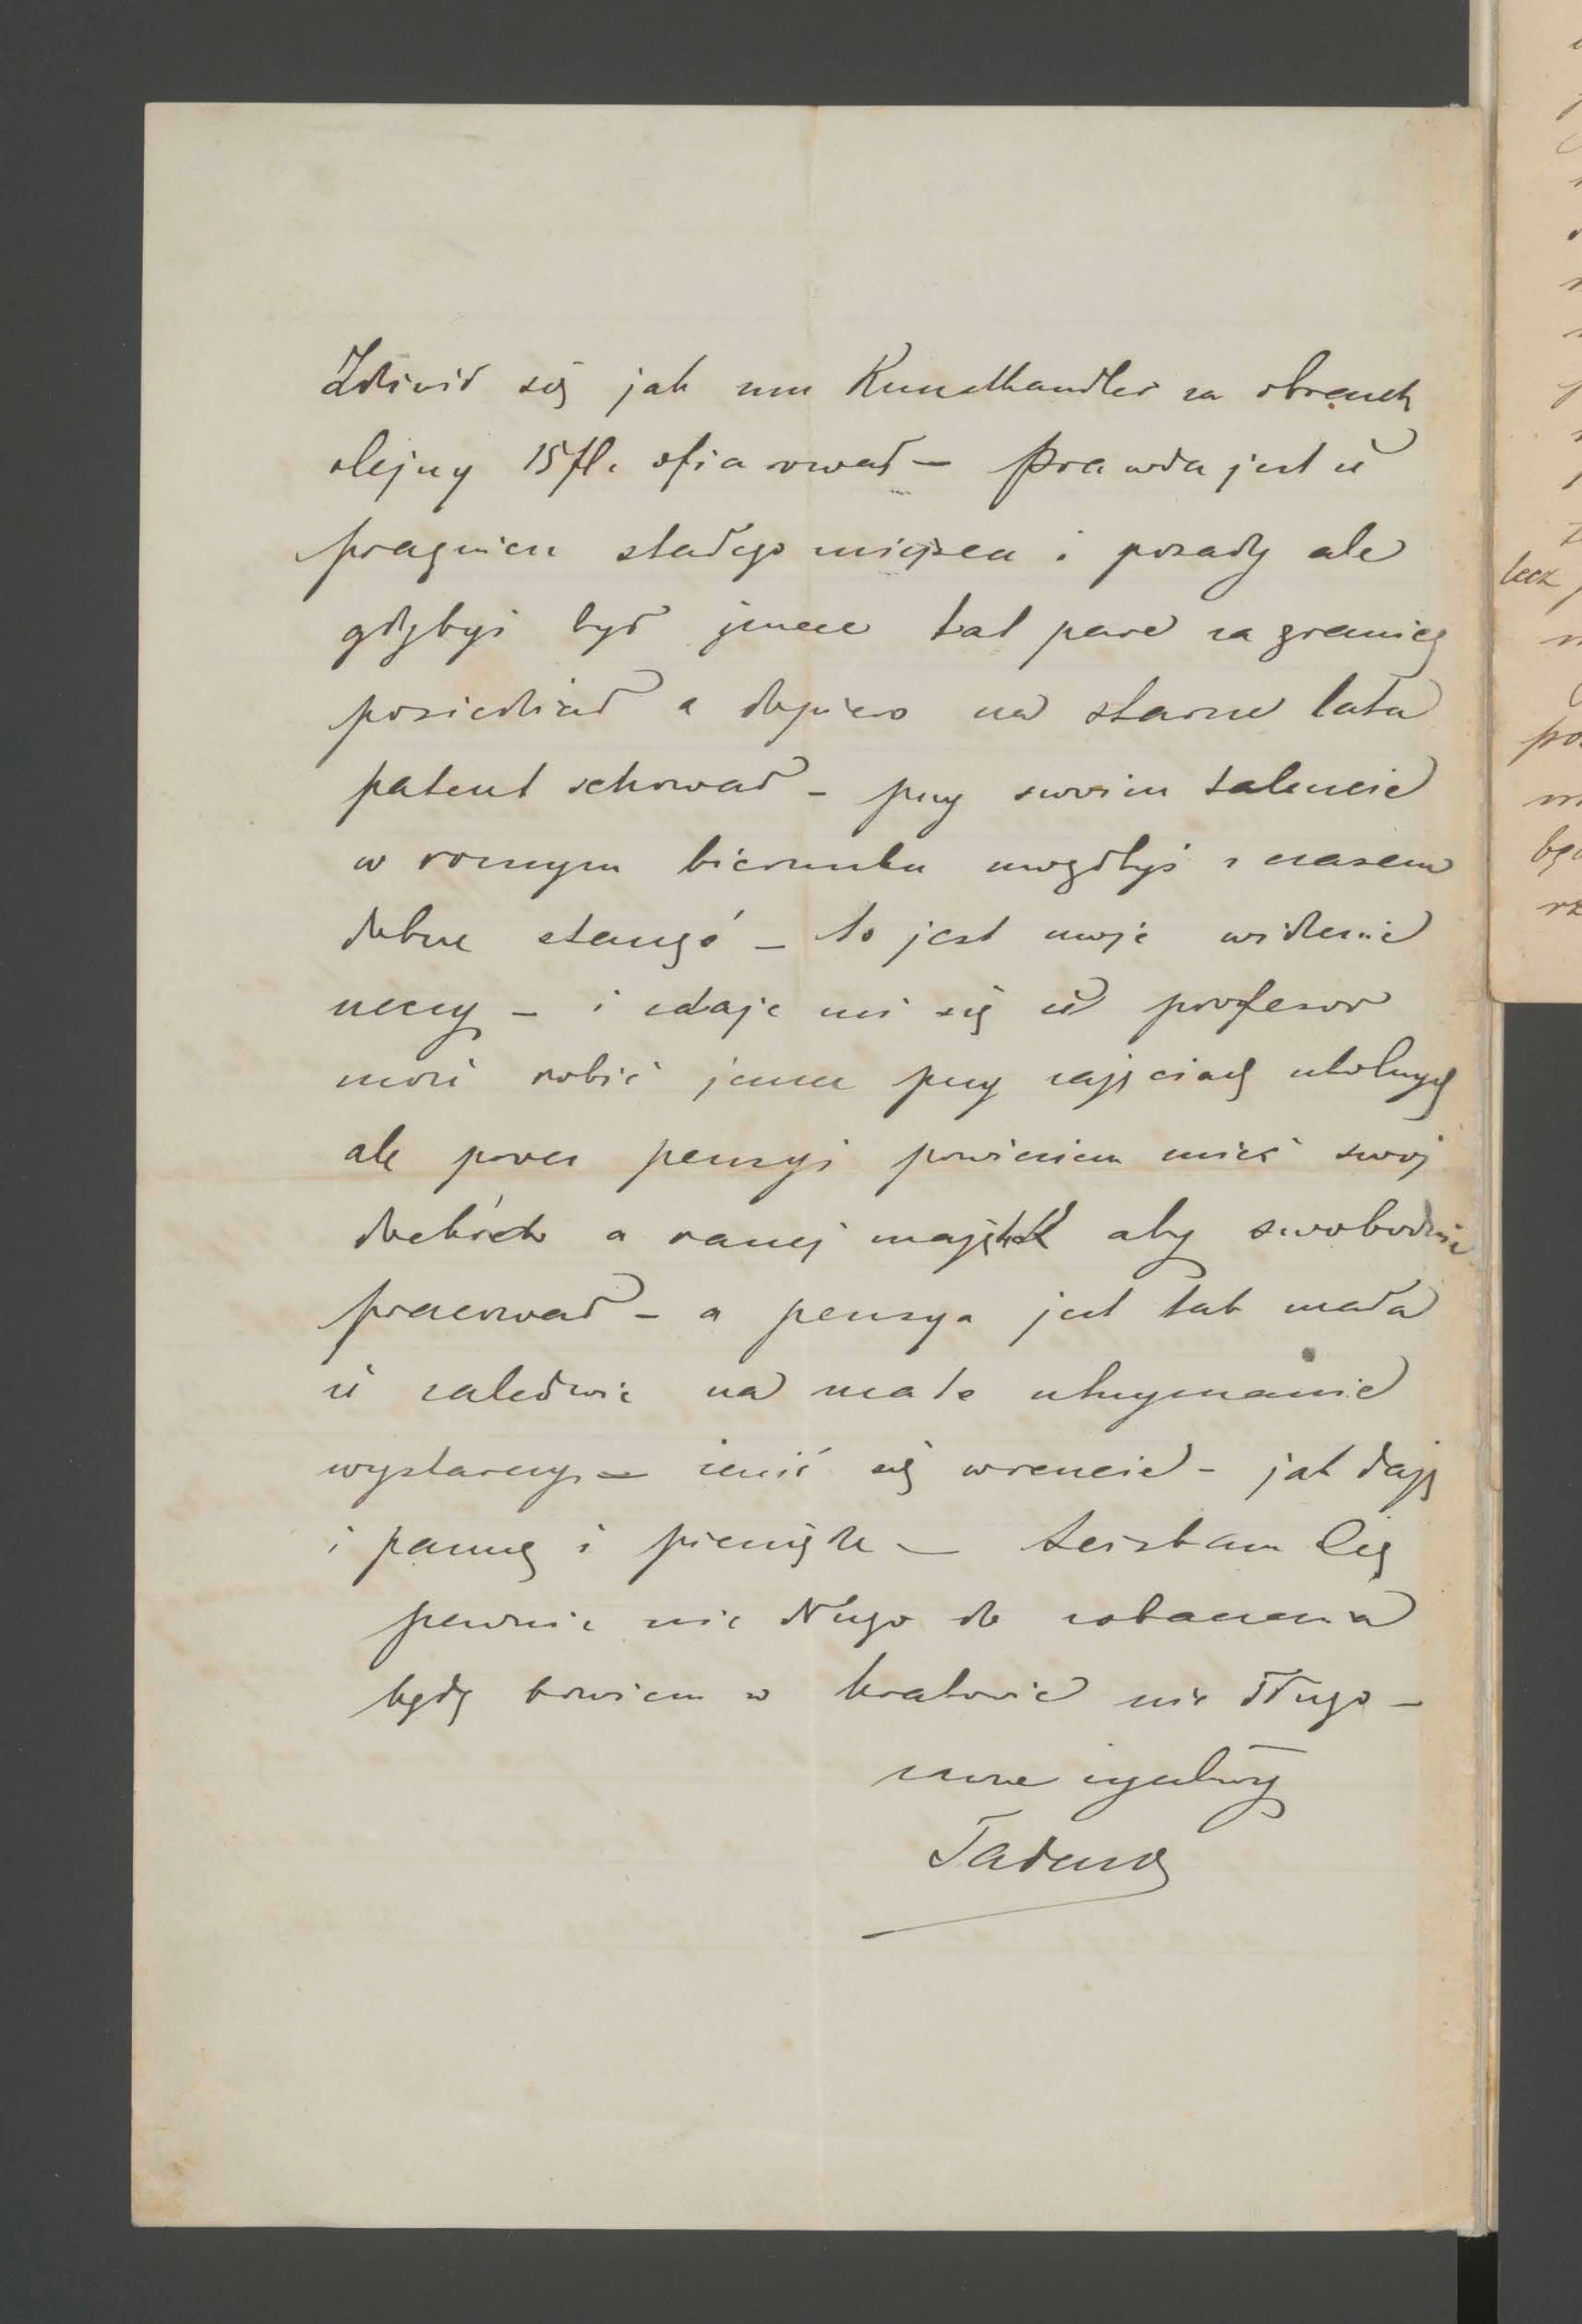 Zdziwił się jak mu Kunsthandler za obrazek
olejny 15 fl. ofiarował – Prawda jest iż
pragniesz stałego miejsca i posady ale
gdybyś był jeszcze lat parę za granicą
posiedział a dopiero na starsze lata
patent schował – przy swoim talencie
w rożnym kierunku mogłbyś z czasem
dobrze stanąć – to jest moje widzenie
rzeczy – i zdaje mi się iż profesor
może robić jeszcze przy zajęciach szkolnych
ale prócz pensyi powinien mieć swój
dochód a raczej majątek aby swobodnie
pracować – a pensya jest tak mała
iż zaledwie na małe utrzymanie
wystarczy – żenić się wreszcie – jak dają
i pannę i pieniądze – Ściskam Cię
pewnie nie długo do zobaczenia
będę bowiem w Krakowie nie długo –
zawsze życzliwy
Tadeusz
lecz